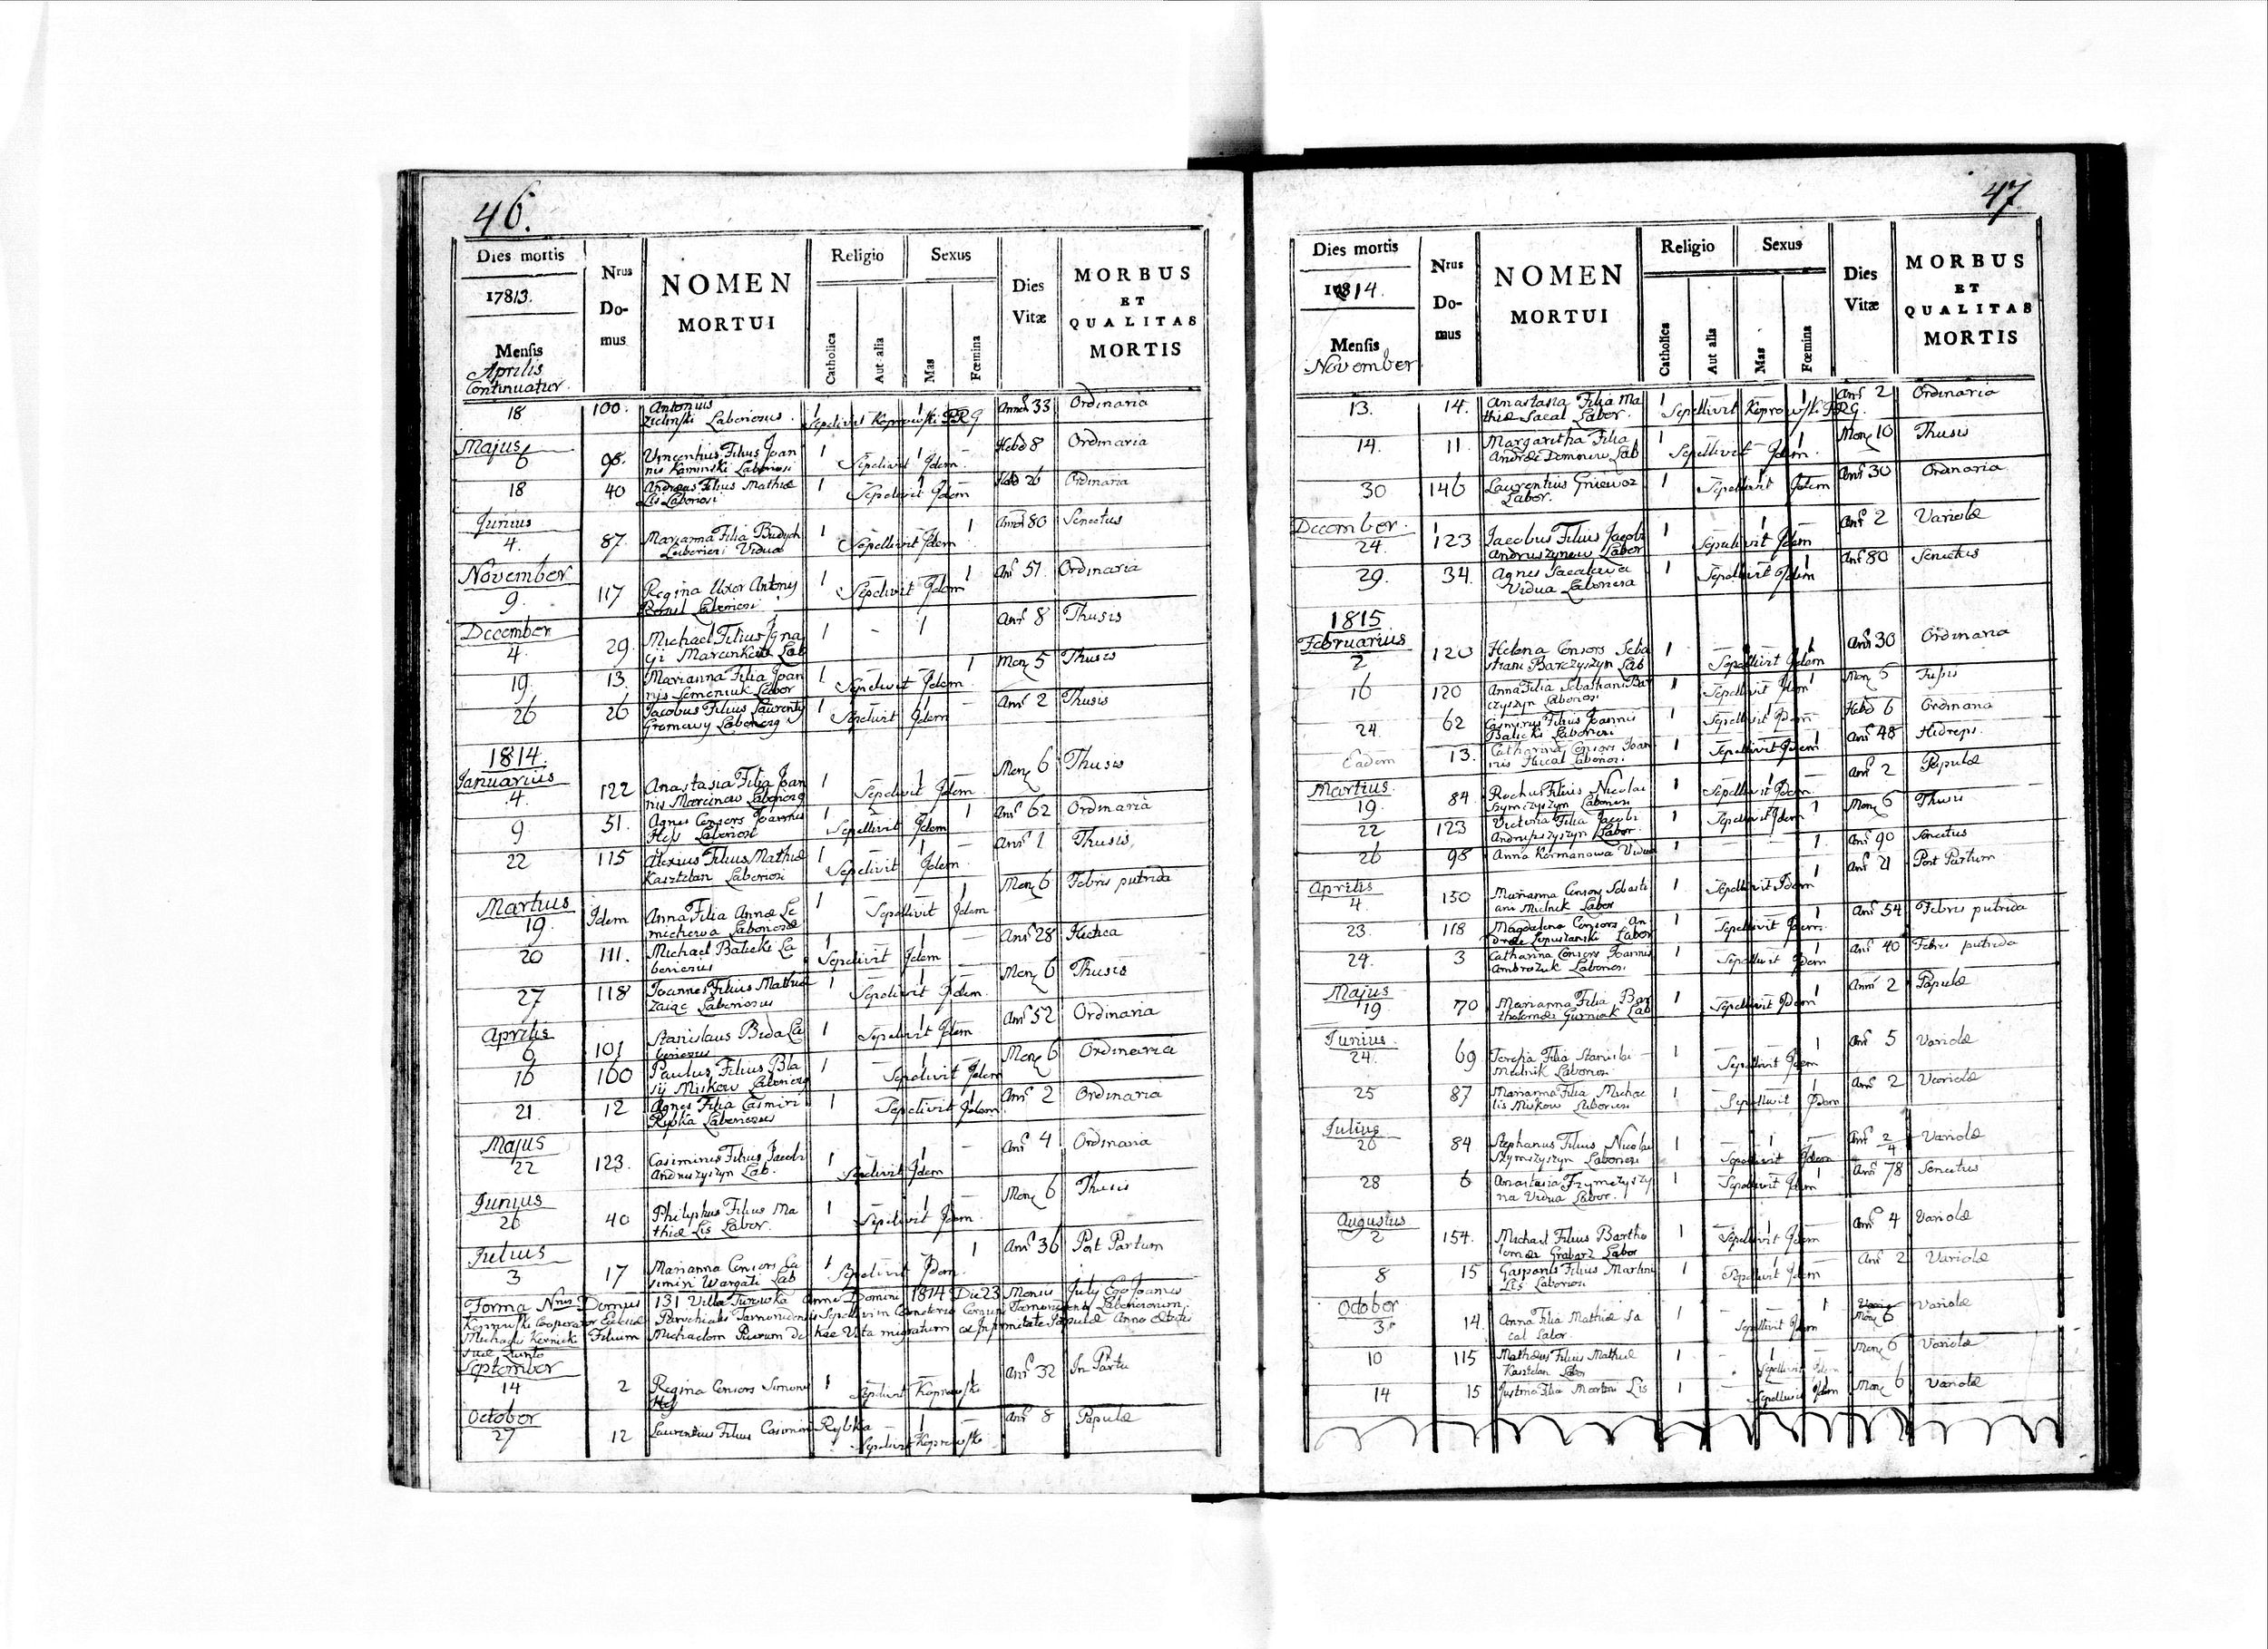 46.
Dies mortis
17813.
Mensis
Aprilis
Continuatur.
Nrus
Do-
mus
NOMEN
MORTUI
Religio
Catholica
Aut alia
Sexus
Mas
Fœmina
Dies
Vitæ
MORBUS
ET
QUALITAS
MORTIS
18 100. Antonius 1 1 Annor 33 Ordinaria
Zielinski Laboriosus. Sepelivit Koprowski PRG
Majus
6 98. Vincentius Filius Joan 1 1 – Hebd 8 Ordinaria
nis Kaminski Laboriosi Sepelivit Idem
18 40 Andreas Filius Mathiæ 1 1 – Hebd 26 Ordinaria
Lis Laboriosi Sepelivit Idem
Junius
4. 87. Marianna Filia 1 – 1 Annor 80 Senectus
Laboriosi Vidua Sepellivit Idem
November
9. 117 Regina Uxor Antony 1 – 1 An 51. Ordinaria
Laboriosi Sepelivit Idem
December
4. 29. Michael Filius Igna 1 - 1 An 8 Thusis
Lab
19. 13. Marianna Filia Joan 1 – 1 Men 5 Thusis
nis Semeniuk Labor Sepelivit Idem
26 26 Jacobus Filius Laurenty 1 1 – An 2 Thusis
Sepelivit Idem
1814.
Januarius
4. 122 Anastasia Filia Joan 1 – 1 – Men 6 Thusis
nis Marcinow Sepelivit Idem
9. 51. Agnes Consors Joannis 1 – 1 An 62 Ordinaria
Hess Laboriosi Sepellivit Idem
22 115 Alexius Filius Mathiæ 1 – 1 – An 1 Thusis
Kasztelan Laboriosi Sepelivit Idem
Martius
19. Idem Anna Filia Annæ Le 1 1 Men 6 Febris putrida
michowa Laboriosæ Sepellivit Idem
20 111. Michael Balicki La 1 1 – An 28 Hectica
boriosus Sepelivit Idem
27 118 Joannes Filius Mathiæ 1 – 1 – Men 6 Thusis
Zaiac Laboriosus Sepelivit Idem.
Aprilis
6 101 Stanislaus Bida La 1 – 1 An 52 Ordinaria
boriosus Sepelivit Idem
16 160 Paulus Filius Bla 1 – 1 Men 6 Ordinaria
sij Miskow Sepelivit Idem
21. 12 Agnes Filia Casmiri 1 – – 1 An 2 Ordinaria
Rybka Laboriosus Sepelivit Idem
Majus
22 123. Casimirus Filius Jacobi 1 1 – An 4 Ordinaria
Andruszyszyn Lab. Sepelivit Idem
Junius
26 40 Philyphus Filius Ma 1 – 1 – Men 6 Thusis
thiæ Lis Labor. Sepelivit Idem
Julius
3 17 Marianna Consors Ca 1 – 1 An 36 Post Partum
simiri Wargati Lab Sepelivit Idem.
Forma Nrus Domus 131 Villa Turowka Anno Domini 1814 Die 23 Mensis July Ego Joannes
Koprowski Cooperator Ecclesiæ Parochialis Sepelivi in
Michaelis Kernicki Filium Michaelem Puerum de hac Vita migratum ex Infirmitate Papulæ Anno Etatis
suæ Quinto
September
14 2 Regina Consors Simonis 1 – – 1 An 32 In Partu
Hess Sepelivit Koprowski
October
27 12 Laurentius Filius Casimiri Rybka 1 – An 8 Papulæ
Sepelivit Koprowski
47.
Dies mortis
1814.
Mensis
November
Nrus
Do-
mus
NOMEN
MORTUI
Religio
Catholica
Aut alia
Sexus
Mas
Fœmina
Dies
Vitæ
MORBUS
ET
QUALITAS
MORTIS
13. 14. Anastasia Filia Ma 1 – 1 An 2 Ordinaria
thiæ Sacal Labor. Sepellivit Koprowski PRG.
14. 11. Margaritha Filia 1 1 Men 10 Thusis
Andreæ Lab Sepellivit Idem.
30 146 Laurentius Gniewoz 1 – 1 – An 30 Ordinaria
Labor. Sepellivit Idem
December.
24. 123 Jacobus Filius Jacobi 1 – 1 – An 2 Variolæ
Andruszynow Labor Sepelivit Idem
29. 34. Agnes Sacalowa 1 – 1 An 80 Senectus
Vidua Laboriosa Sepelivit Idem
1815
Februarius
2 120 Helena Consors Seba 1 – 1 An 30 Ordinaria
stiani Barczyszyn Lab Sepellivit Idem
16 120 Anna Filia Sebastiani Bar 1 – 1 Men 5 Tussis
czyszyn Laboriosi Sepellivit Idem
24. 62 Casmirus Filius Joannis 1 Hebd 6 Ordinaria
Balicki Laboriosi Sepellivit Idem
Eadem 13. Catharina Consors Joan 1 – 1 An 48 Hidreps.
nis Laboriosi Sepellivit Idem
Martius
19. 84. Rochus Filius Nicolai 1 – 1 – An 2 Papulæ
Szymczyszyn Laboriosi Sepellivit Idem
22 123 Victoria Filia Jacobi 1 – 1 Men 6 Thusis
Andruszyszyn Labor. Sepellivit Idem
26 98 Anna Kormanowa Vidua 1 – – 1. An 90 Senectus
Aprilis
4. 130 Marianna Consors Sebasti 1 – 1 An 21 Post Partum
ani Mielnik Labor Sepellivit Idem
23. 118 Magdalena Consors An 1 – 1 An 54 Febris putrida
dreæ Lopuszanski Labor Sepellivit Idem.
24. 3 Catharina Consors Joannis 1 – 1 An 40 Febris putrida
Ambrozuk Laboriosi Sepellivit Idem
Majus
19 70 Marianna Filia Bar 1 – 1 Anni 2 Papulæ
tholomæi Gurniak Lab Sepellivit Idem
Junius
24. 69 Teresia Filia Stanislai 1 – 1 An 5 Variolæ
Mielnik Laboriosi Sepellivit Idem
25 87 Marianna Filia Michae 1 – 1 An 2 Variolæ
lis Miskow Laboriosi Sepellivit Idem
Julius
26 84 Stephanus Filius Nicolai 1 – 1 – An 2/4 Variolæ
Szymszyszyn Laboriosi Sepellivit Idem
28 6 Anastasia 1 – 1 An 78 Senectus
na Vidua Labor. Sepellivit Idem
Augustus
2 154. Michael Filius Bartho 1 – 1 – An 4 Variolæ
lomæi Grabarz Labor Sepelivit Idem
8 15 Gasparus Filius Martini 1 – 1 – An 2 Variolæ
Lis Laboriosi Sepelivit Idem
October
3. 14. Anna Filia Mathiæ Sa 1 – 1 Men 6 Variolæ
cal Labor. Sepellivit Idem
10 115 Mathæus Filius Mathiæ 1 – 1 – Men 6 Variolæ
Kasztelan Labor Sepellivit Idem
14 15 Justina Filia Martini Lis 1 – – Men 6 Variolæ
Sepellivit Idem